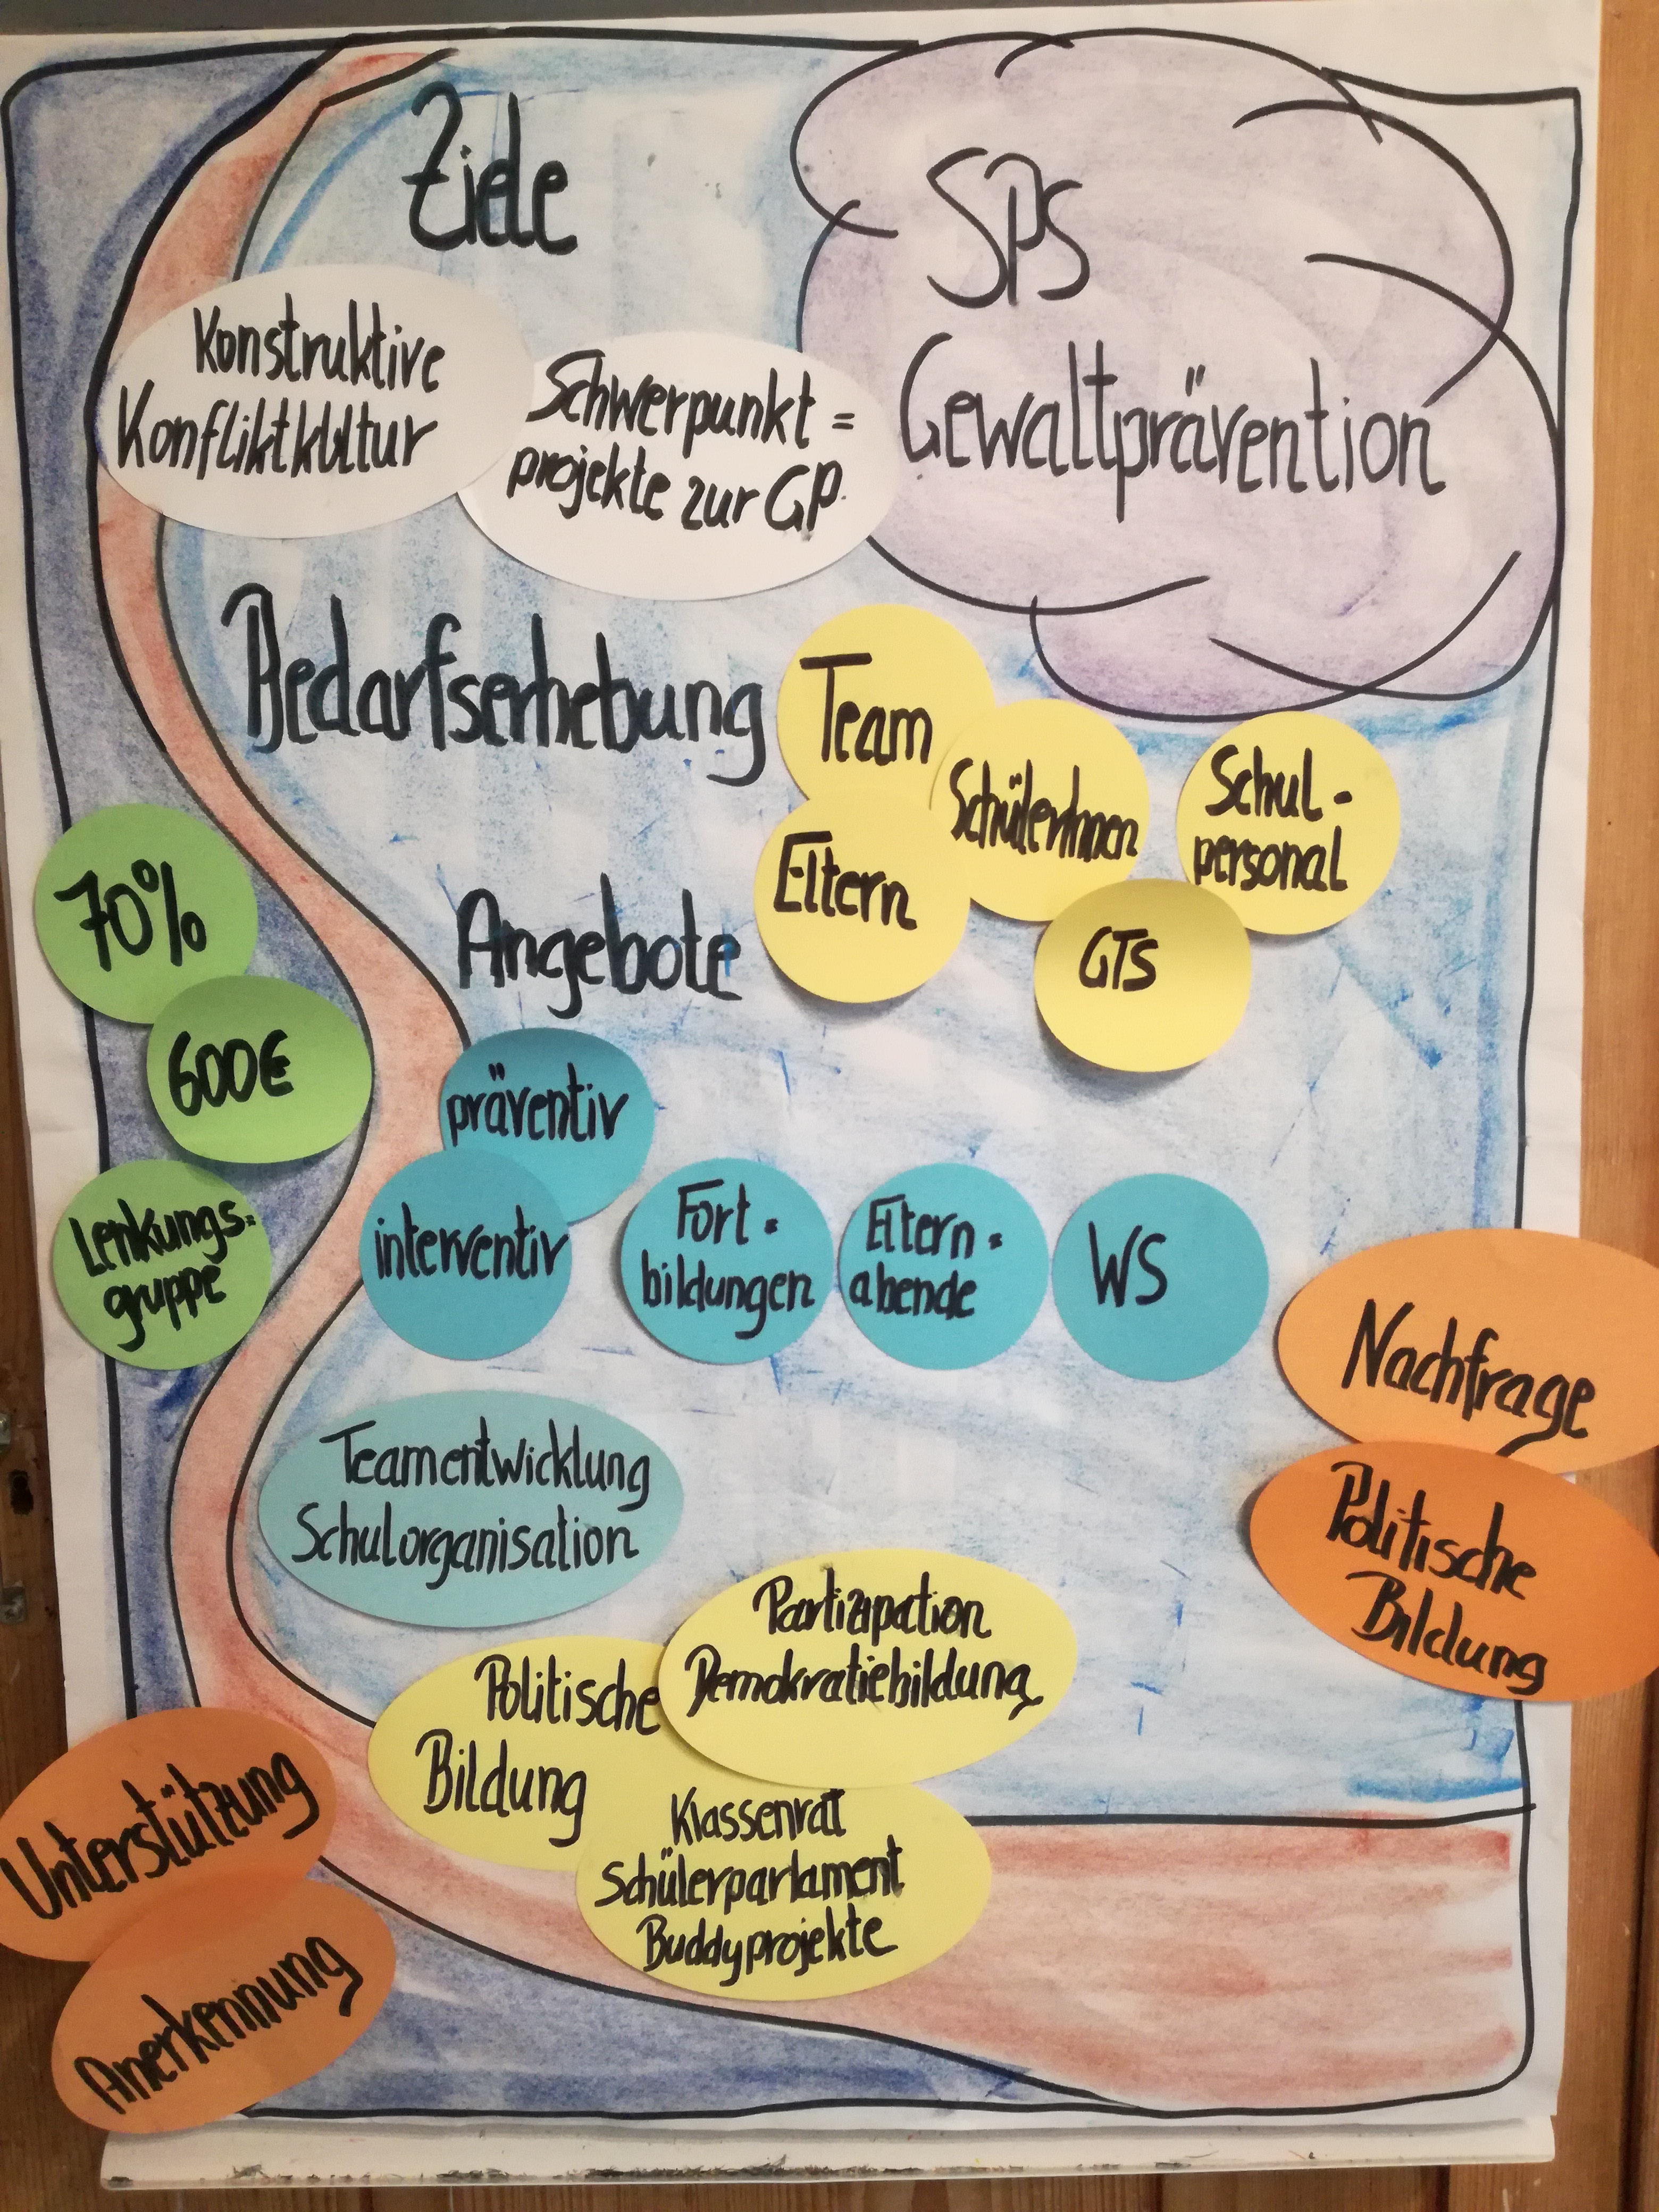 Ziele
SPS
Gewaltprävention
Konstruktive
Konfliktkultur
Schwerpunkt=
projekte zur GP.
Bedarfserhebung
Team
SchülerInnen
Schul-
personal
Eltern
GTS
70%
600€
Lenkungs=
gruppe
Angebote
präventiv
interventiv
Fort=
bildungen
Eltern=
abende
WS
Nachfrage
Politische
Bildung
Teamentwicklung
Schulorganisation
Partizipation
Demokratiebildung
Politische
Bildung
Klassenrat
Schülerparlament
Buddyprojekte
Unterstützung
Anerkennung